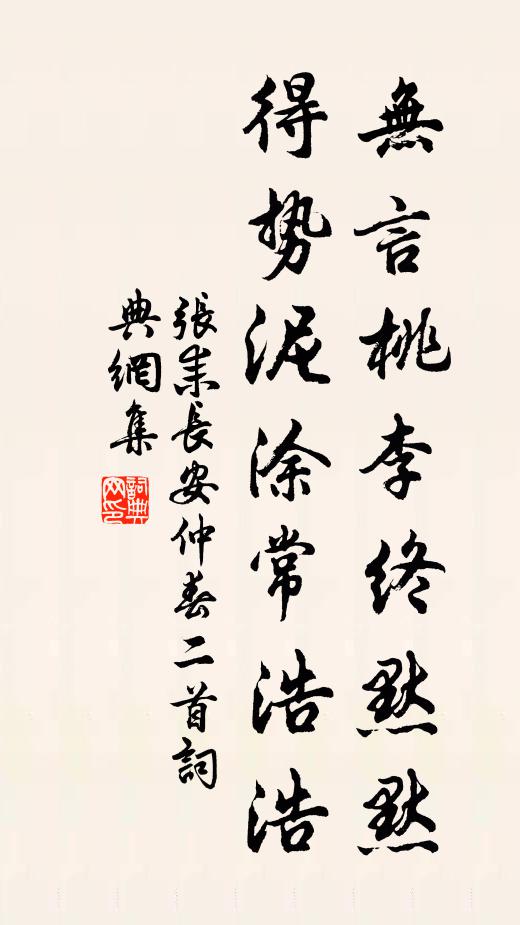 無言桃李終默默
得勢泥涂常浩浩
張耒長安仲春二首詞
典網集
詞典
网印